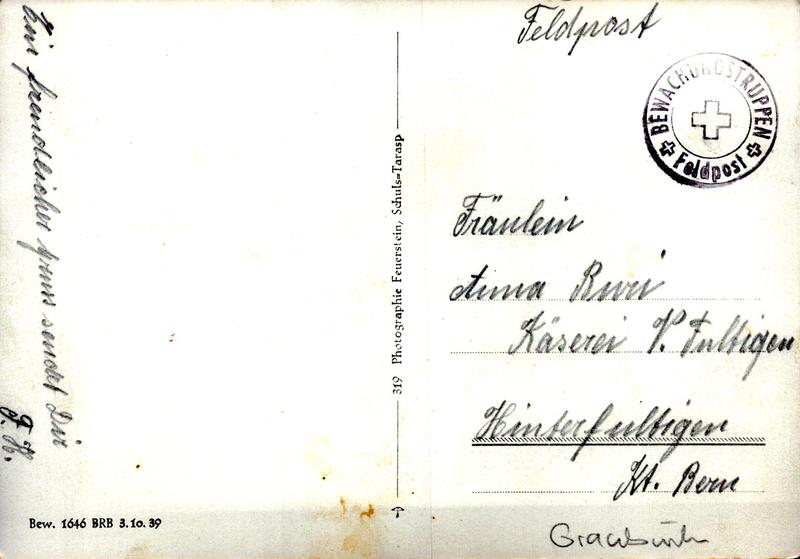 Ein freundlicher Gruss sendet Dir
F. H.
Bew. 1646 BRB 3.10.39
319 Photographie Feuerstein, Schuls=Tarasp
Feldpost
BEWACHUNGSTRUPPEN
Feldpost
Fräulein
Anna
Käserei V. Fultigen
Hinterfultigen
Kt. Bern